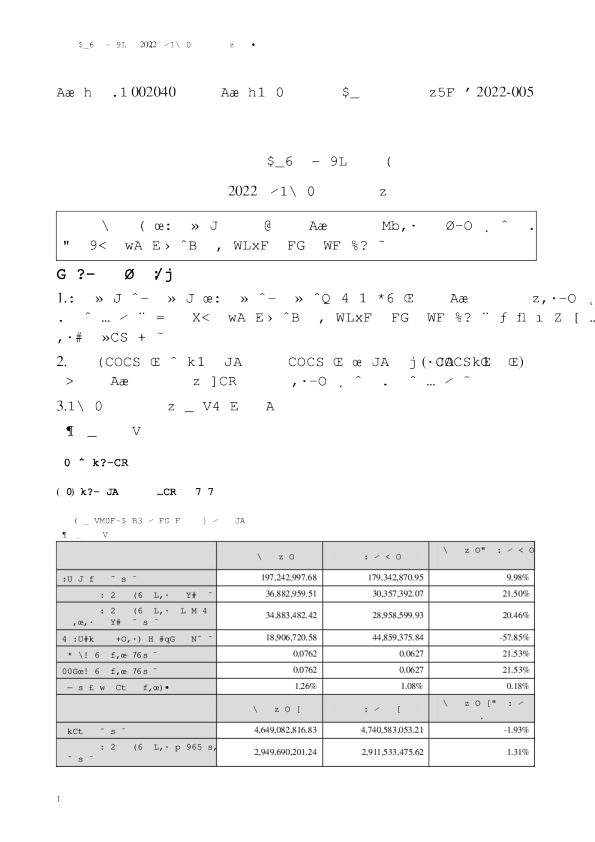 $_6 – 9L 2022 ⁄1\ 0 z •
Aæ h .1 002040 Aæ h1 0 $_ z5F ′ 2022-005
$_6 – 9L (
2022 ⁄1\ 0 z
\ ( œ: » J @ Aæ Mb,· Ø–O ˛ ˆ .
" 9< wA E› ˆB , WLxF FG WF %? ˜
G ?– Ø ⁄j
1.: » J ˆ– » J œ: » ˆ– » ˆQ 4 1 *6 Œ Aæ z,·–O ˛
. ˆ … ⁄ ¨ = X< wA E› ˆB , WLxF FG WF %? ¨ ƒ fl ı Z [ …
,·# »CS + ˜
2. (COCS Œ ˆ k1 JA COCS Œ œ JA j
> Aæ z ]CR ,·–O ˛ ˆ . ˆ … ⁄ ˜
3.1\ 0 z _ V4 E A
¶ _ V
0 ˆ k?–CR
( 0) k?– JA …CR 7 7
( _ VM0F–$ B3 ⁄ FG F ) ⁄ JA
¶ _ V
\ z O : ⁄ < O \ z O" : ⁄ < O
:U J f ¨ s ˜ 197,242,997.68 179,342,870.95 9.98%
: 2 (6 L,· Y# ˜ 36,882,959.51 30,357,392.07 21.50%
: 2 (6 L,· L M 4
,œ,· Y# ¨ s ˜ 34,883,482.42 28,958,599.93 20.46%
4 :U#k +O,·) H #qG N˝ ˜ 18,906,720.58 44,859,375.84 -57.85%
* \! 6 f,œ 76s ˜ 0.0762 0.0627 21.53%
00Gœ! 6 f,œ 76s ˜ 0.0762 0.0627 21.53%
— s £ w Ct f,œ)• 1.26% 1.08% 0.18%
\ z O [ : ⁄ [ \ z O [" : ⁄
.
kCt ¨ s ˜ 4,649,082,816.83 4,740,583,053.21 -1.93%
: 2 (6 L,· p 965 s,
¨ s ˜ 2,949,690,201.24 2,911,533,475.62 1.31%
1